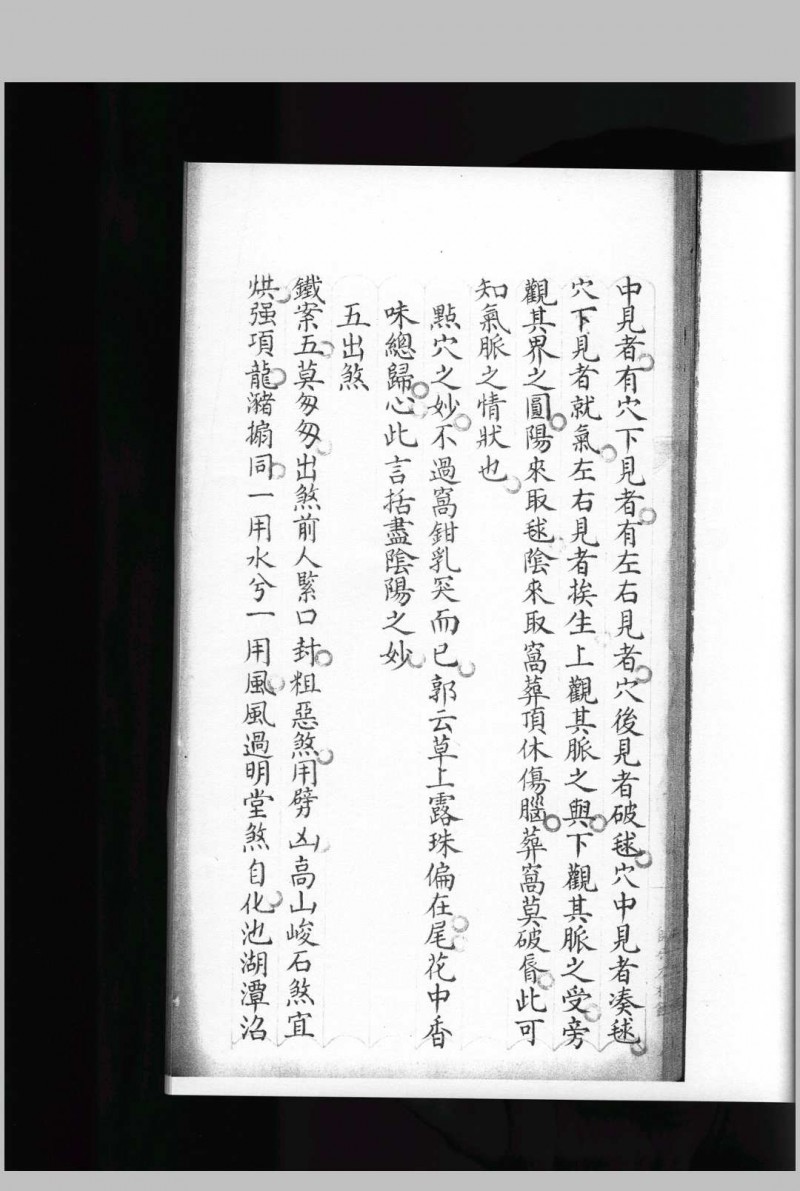 中見者有穴下見者有左右見者穴後見者破毬穴中見者凑毬
穴下見者就氣左右見者挨生上觀其脈之與下觀其脈之受旁
觀其界之圓陽來取毬陰來取窩葬頂休傷腦葬窩莫破唇此可
知氣脈之情狀也
點穴之妙不過窩鉗乳突而已郭云草上露珠偏在尾花中香
味總歸心此言括盡陰陽之妙
五出煞
鐵案五莫匆匆出煞前人緊口封粗惡煞用劈凶高山峻石煞宜
烘强項龍瀦搧同一用水兮一用風風過明堂煞自化池湖潭沼